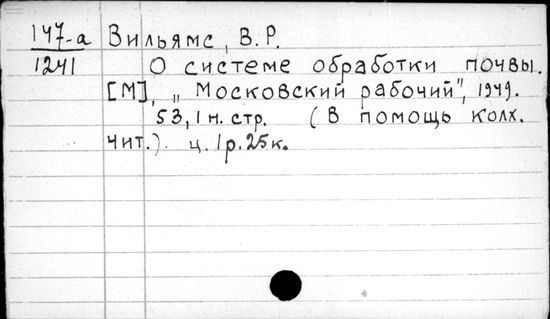 147-а Вильямс, В.Р.
1241 О системе обработки почвы.
[М], „Московский рабочий", 1949.
53, 1 н. стр. (В помощь колх.
чит.). ц. 1р.25к.